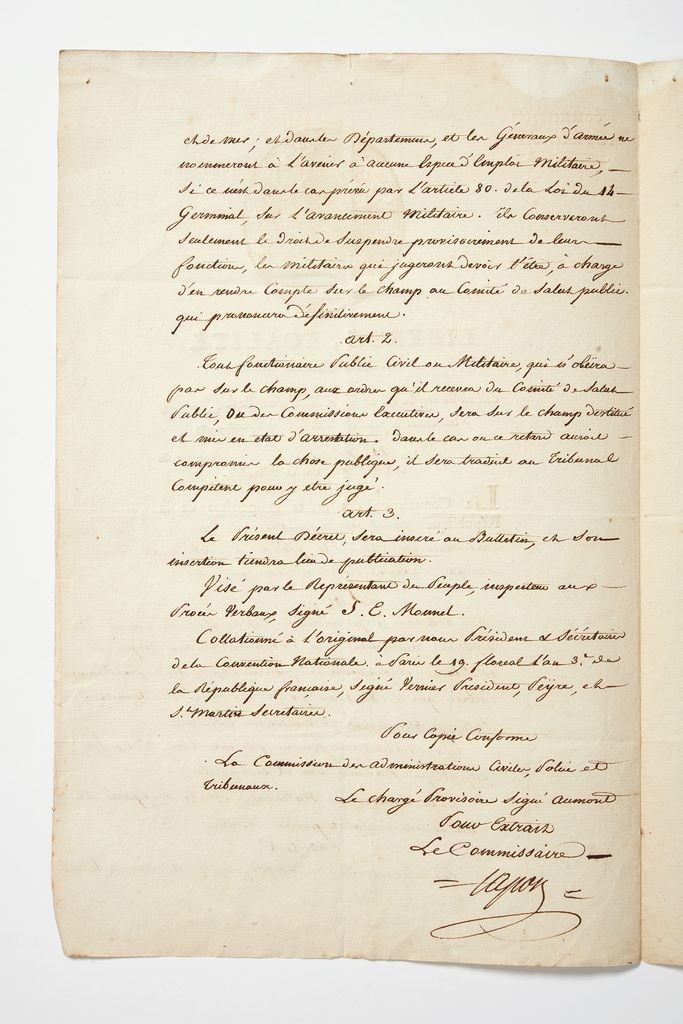 et de mer ; et dans les Départemens, et les Généraux d'armée ne
nommeront à l'avenir à aucune Espece d'Emploi Militaire, —
si ce n'est dans le cas prévu par l'article 80. de la Loi du 14 —
Germinal, sur l'avancement Militaire. ils Conserveront
seulement le droit de suspendre provisoirement de leurs —
fonctions, les militaires qui jugeront devoir l'être, à charge
d'en rendre Compte sur le champ au Comité de salut public.
qui prononcera définitivement.
art. 2.
Tout fonctionaire Public Civil ou Militaire qui n'obéira —
pas sur le champ, aux ordres qu'il recevra du Comité de Salut
Public, Ou des Commissions Executives, sera sur le champ destitué
et mis en etat d'arrestation. dans le cas ou ce retard auroit —
compromis la chose publique, il sera traduit au Tribunal
Compétent pour y etre jugé.
art. 3.
Le Présent Décret, sera inseré au Bulletin, et son
insertion tiendra lieu de publication.
Visé par le Représentant du Peuple, inspecteur aux —
Procès Verbaux, signé S. E. Monnel.
Collationné à l'original par nous Président & Sécrétaires
de la Convention Nationale. à Paris le 19. floreal l'an 3.e de
la République française, signé Vernier Président, Peyre, et
St. Martin Secretaires.
Pour Copie Conforme
La Commission des administrations Civiles, Police et
Tribunaux.
Le chargé Provisoire signé Aumont
Pour Extrait
Le Commissaire —